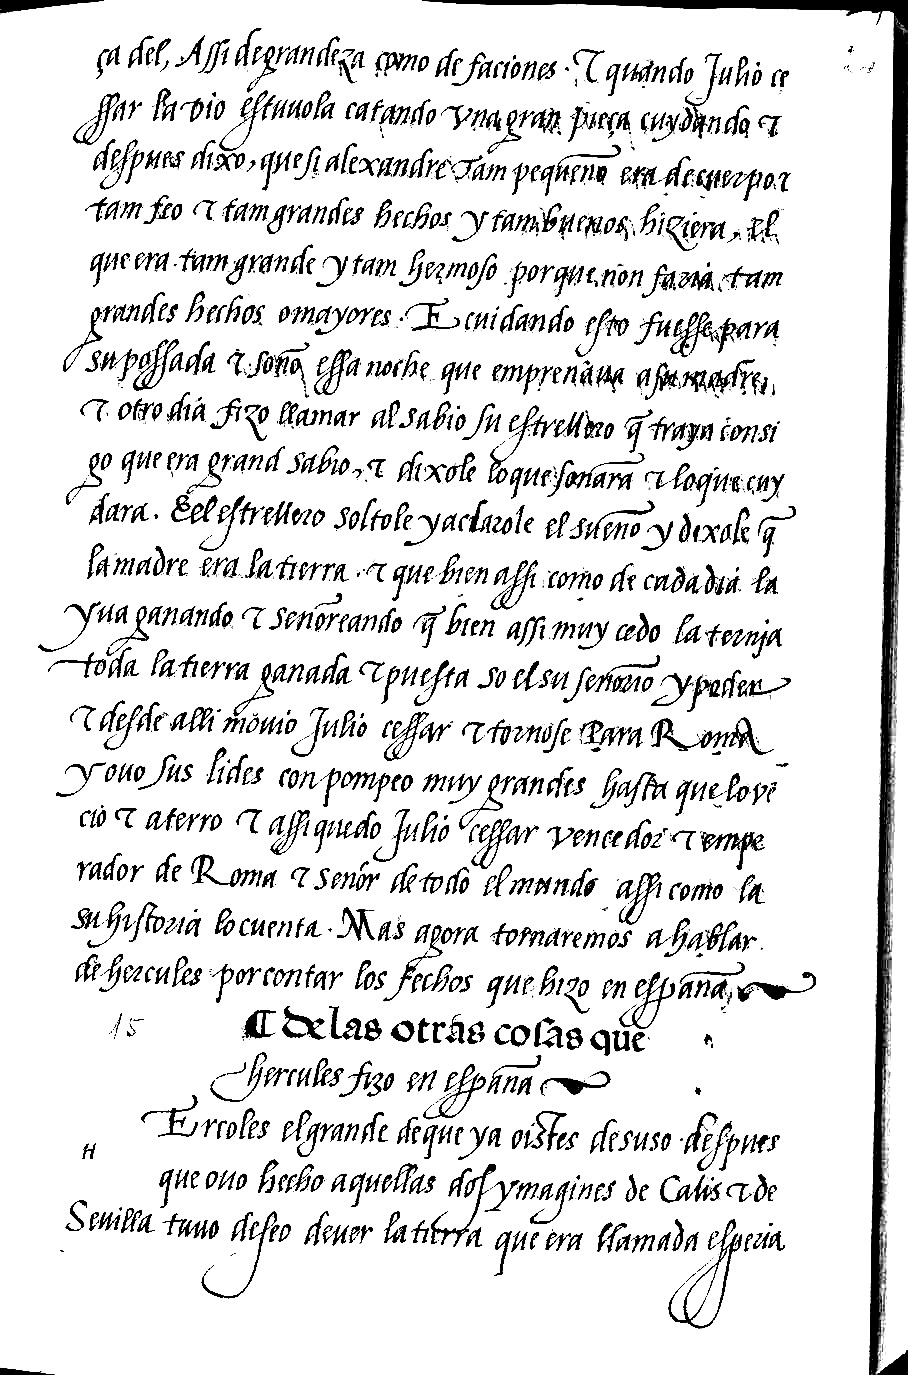 ça del, Assi de grandeza como de faciones · τ quando Julio ce
ssar la vio estuuola catando vna gran pieça cuydando τ
despues dixo, que si alexandre Tam pequeño era de cuerpo τ
tam feo τ tam grandes hechos y tam buenos hiziera, El
que era tam grande y tam hermoso porque non faria tam
grandes hechos o mayores · E cuidando esto fuesse para
su possada τ soño essa noche que emprenãua a su madre,
τ otro dia fizo llamar al sabio su estrellero q̃ traya consi
go que era grand sabio, τ dixole lo que soñara τ lo que cuy
dara. E el estrellero soltole y aclarole el sueño y dixole q̃
la madre era la tierra · τ que bien assi como de cada dia la
yua ganando τ señoreando q̃ bien assi muy cedo la ternja
toda la tierra ganada τ puesta so el su señorio y poder
τ desde alli mouio Julio cessar τ tornose Para Roma
y ouo sus lides con pompeo muy grandes hasta que lo vẽ
cio τ aterro τ assi quedo Julio cessar vencedor τ empe
rador de Roma τ señor de todo el mundo assi como la
su historia lo cuenta · Mas agora tornaremos a hablar
de hercules por contar los fechos que hizo en españa,
15
¶ de las otras cosas que
hercules fizo en españa
Ercoles el grande de que ya oistes de suso · despues
H
que ouo hecho aquellas dos ymagines de Calis τ de
Seuilla tuuo deseo de uer la tierra que era llamada esperia